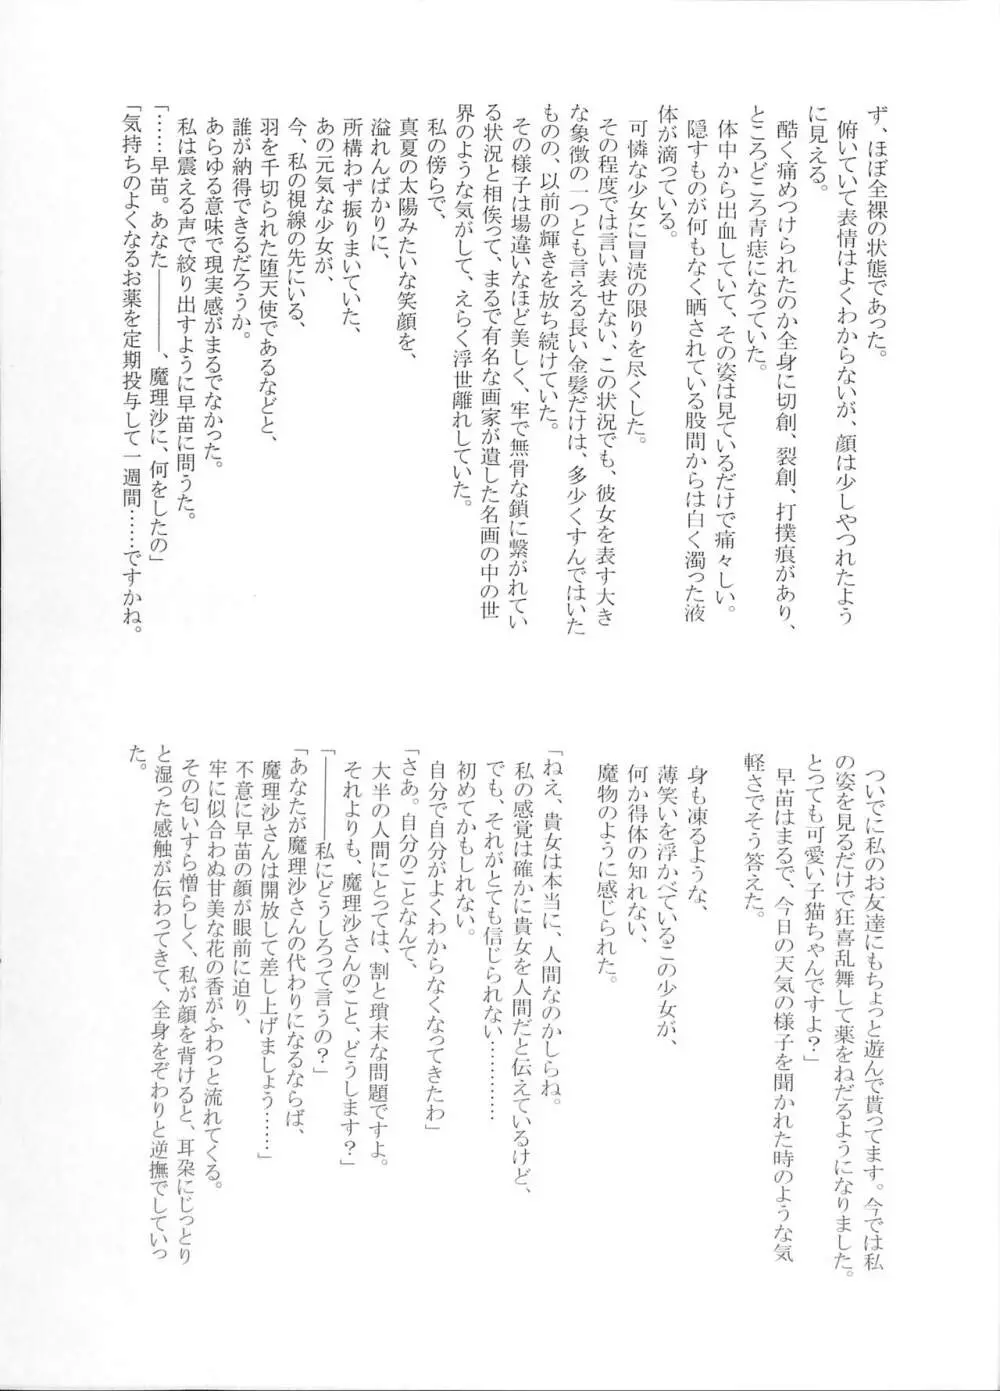 ず、ほぼ全裸の状態であった。
俯いていて表情はよくわからないが、顔は少しやつれたよう
に見える。
酷く痛めつけられたのか全身に切創、裂創、打撲痕があり、
ところどころ青痣になっていた。
体中から出血していて、その姿は見ているだけで痛々しい。
隠すものが何もなく晒されている股間からは白く濁った液
体が滴っている。
可憐な少女に冒涜の限りを尽くした。
その程度では言い表せない、この状況でも、彼女を表す大き
な象徴の一つとも言える長い金髪だけは、多少くすんではいた
ものの、以前の輝きを放ち続けていた。
その様子は場違いなほど美しく、牢で無骨な鎖に繋がれてい
る状況と相俟って、まるで有名な画家が遺した名画の中の世
界のような気がして、えらく浮世離れしていた。
私の傍らで、
真夏の太陽みたいな笑顔を、
溢れんばかりに、
所構わず振りまいていた、
あの元気な少女が、
今、私の視線の先にいる、
羽を千切られた堕天使であるなどと、
誰が納得できるだろうか。
あらゆる意味で現実感がまるでなかった。
私は震える声で絞り出すように早苗に問うた。
「……早苗。あなた――――、魔理沙に、何をしたの」
「気持ちのよくなるお薬を定期投与して一週間……ですかね。
ついでに私のお友達にもちょっと遊んで貰ってます。今では私
の姿を見るだけで狂喜乱舞して薬をねだるようになりました。
とっても可愛い子猫ちゃんですよ？」
早苗はまるで、今日の天気の様子を聞かれた時のような気
軽さでそう答えた。
身も凍るような、
薄笑いを浮かべているこの少女が、
何か得体の知れない、
魔物のように感じられた。
「ねえ、貴女は本当に、人間なのかしらね。
私の感覚は確かに貴女を人間だと伝えているけど、
でも、それがとても信じられない…………
初めてかもしれない。
自分で自分がよくわからなくなってきたわ」
「さあ。自分のことなんて、
大半の人間にとっては、割と瑣末な問題ですよ。
それよりも、魔理沙さんのこと、どうします？」
「――――私にどうしろって言うの？」
「あなたが魔理沙さんの代わりになるならば、
魔理沙さんは開放して差し上げましょう……」
不意に早苗の顔が眼前に迫り、
牢に似合わぬ甘美な花の香がふわっと流れてくる。
その匂いすら憎らしく、私が顔を背けると、耳朶にじっとり
と湿った感触が伝わってきて、全身をぞわりと逆撫でしていっ
た。